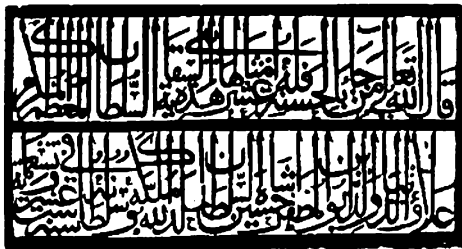 قال الله تعالى من جاء بالحسنة فله عشر امثالها بنى هذه السقاية السلطان المعظم المكرم
علاء الدنيا والدين ابو المظفر حسين شاه السلطان خلد الله ملكه وسلطانه في سنة وعشرين وتسعمائة